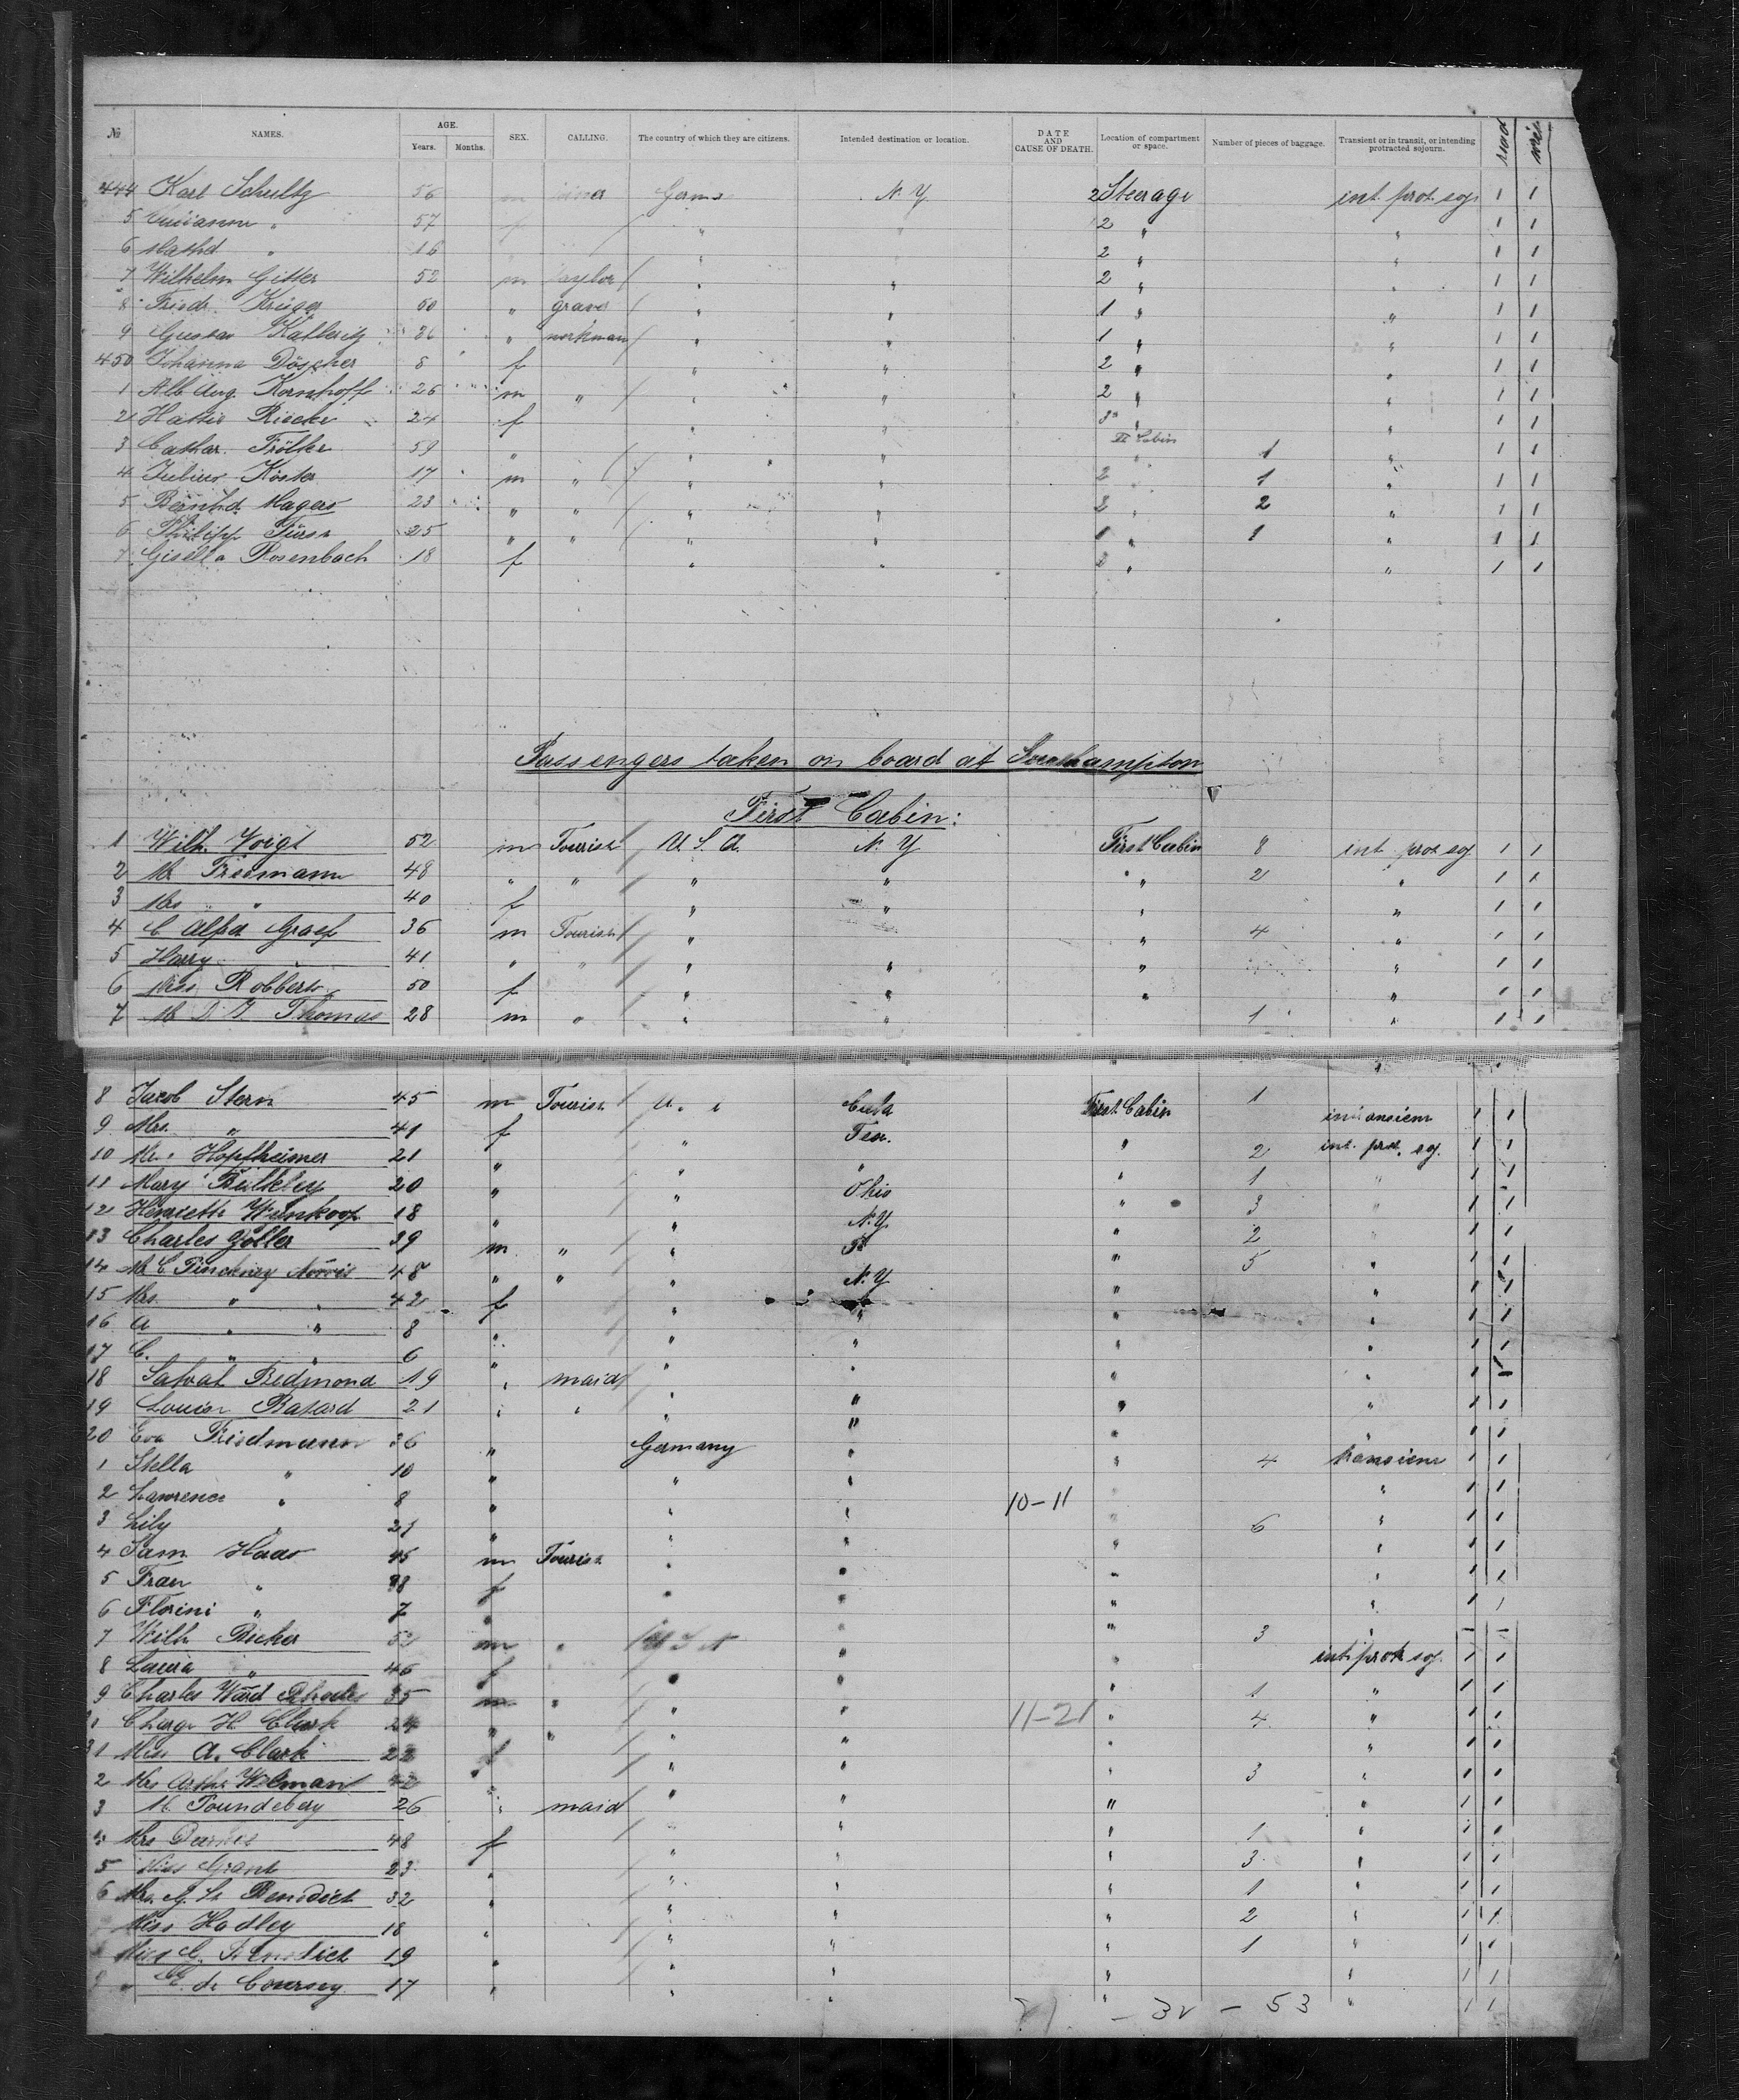 № NAMES. AGE. Years. Months. SEX. CALLING. The country of which they are citizens. Intended destination or location. DATE AND CAUSE OF DEATH. Location of compartment or space. Number of pieces of baggage. Transient or in transit, or intending protracted sojourn. read
444 Karl Schultz 56 m Germ N.Y. 2 Steerage int prot soj. 1 1
5 " 57 f " " 2 " " 1 1
6 Mathd " 16 " 2 " " 1 1
7 Wilhelm Gitter 52 m taylor " " 2 " " 1 1
8 Friedr. Krüger 60 " graver " " 1 " " 1 1
9 Gustav 26 " workman " " 1 " " 1 1
450 Johanna Döscher 8 f " " 2 " " 1 1
1 Alb. Aug. Kornhoff 26 m " " " 2 " " 1 1
2 Hattie Riecke 24 f " " 3 " " 1 1
3 Cathar. Frölke 59 " " " II Cabin 1 " 1 1
4 Julius Köster 17 m " " " 2 1 " 1 1
5 Bernhd. Magers 23 " " " " 2 " 2 " 1 1
6 Philipp Fürst 25 " " " " 1 " 1 " 1 1
7 Gisella Rosenbach 18 f " " 2 " " 1 1
Passengers taken on board at Southampton
First Cabin:
1 Wilh. Voigt 52 m Tourist U.S.A. N.Y. First Cabin 8 int prot soj 1 1
2 Mr Friedmann 48 " " " " " 2 " 1 1
3 Mrs " 40 f " " " " 1 1
4 C Alfed Graef 36 m Tourist " " 4 " 1 1
5 Harry " 41 " " " " " " 1 1
6 Miss Robberts 50 f " " " " 1 1
7 Mr D. J. Thomas 28 m " " " 1 " 1 1
8 Jacob Stern 45 m Tourist U. " Cuba First Cabin 1 intransient 1 1
9 Mrs. " 41 f " Tex. " 2 int. prot. soj. 1 1
10 Mr. Hopfheimer 21 " " " " 1 " 1 1
11 Mary Bulkley 20 " " Ohio " 3 " 1 1
12 Henriette Weinkoop 18 " " N.Y. " 2 " 1 1
13 Charles Zoller 39 m " " " 5 " 1 1
14 Mr C Pinckney Norris 48 " " " N.Y. " " 1 1
15 Mrs. " " 42 f " " " " 1 1
16 A " " 8 " " " " " 1 1
17 C. " " 6 " " " " " 1 1
18 Redmond 19 " maid " " " " 1 1
19 Louise Basard 21 " " " " " " 1 1
20 Eva Friedmann 36 " Germany " " 4 transient 1 1
1 Stella " 10 " " " " 1 1
2 Lawrence " 8 " " " 10-11 " " 1 1
3 Lily " 21 " " " " 6 " 1 1
4 Sam Haas 45 m Tourist " " " " 1 1
5 Frau " 38 f " " " " 1 1
6 Florini " 7 " " " 3 " 1 1
7 Wilh Becker 52 m " U S A " " int prot soj. 1 1
8 Laura " 46 f " " " 1 " 1 1
9 Charles Ward Rhodes 35 m " " " 11-21 " 4 " 1 1
0 H Clark 24 " " " " " " 1 1
31 Miss A. Clark 22 f " " " 3 " 1 1
2 Mrs Arthr Welman 42 " " " " " 1 1
3 M. Poundebery 26 " maid " " " " 1 1
4 Mrs 48 f " " " 1 " 1 1
5 Miss Grant 23 " " " " 3 " 1 1
6 Mrs. Benedict 32 " " " " 1 " 1 1
Miss Hadley 18 " " " " 2 " 1 1
Miss C. Benedict 19 " " " " 1 " 1 1
9 " de Coursey 17 " " " " " 1 1
- 32 - 53